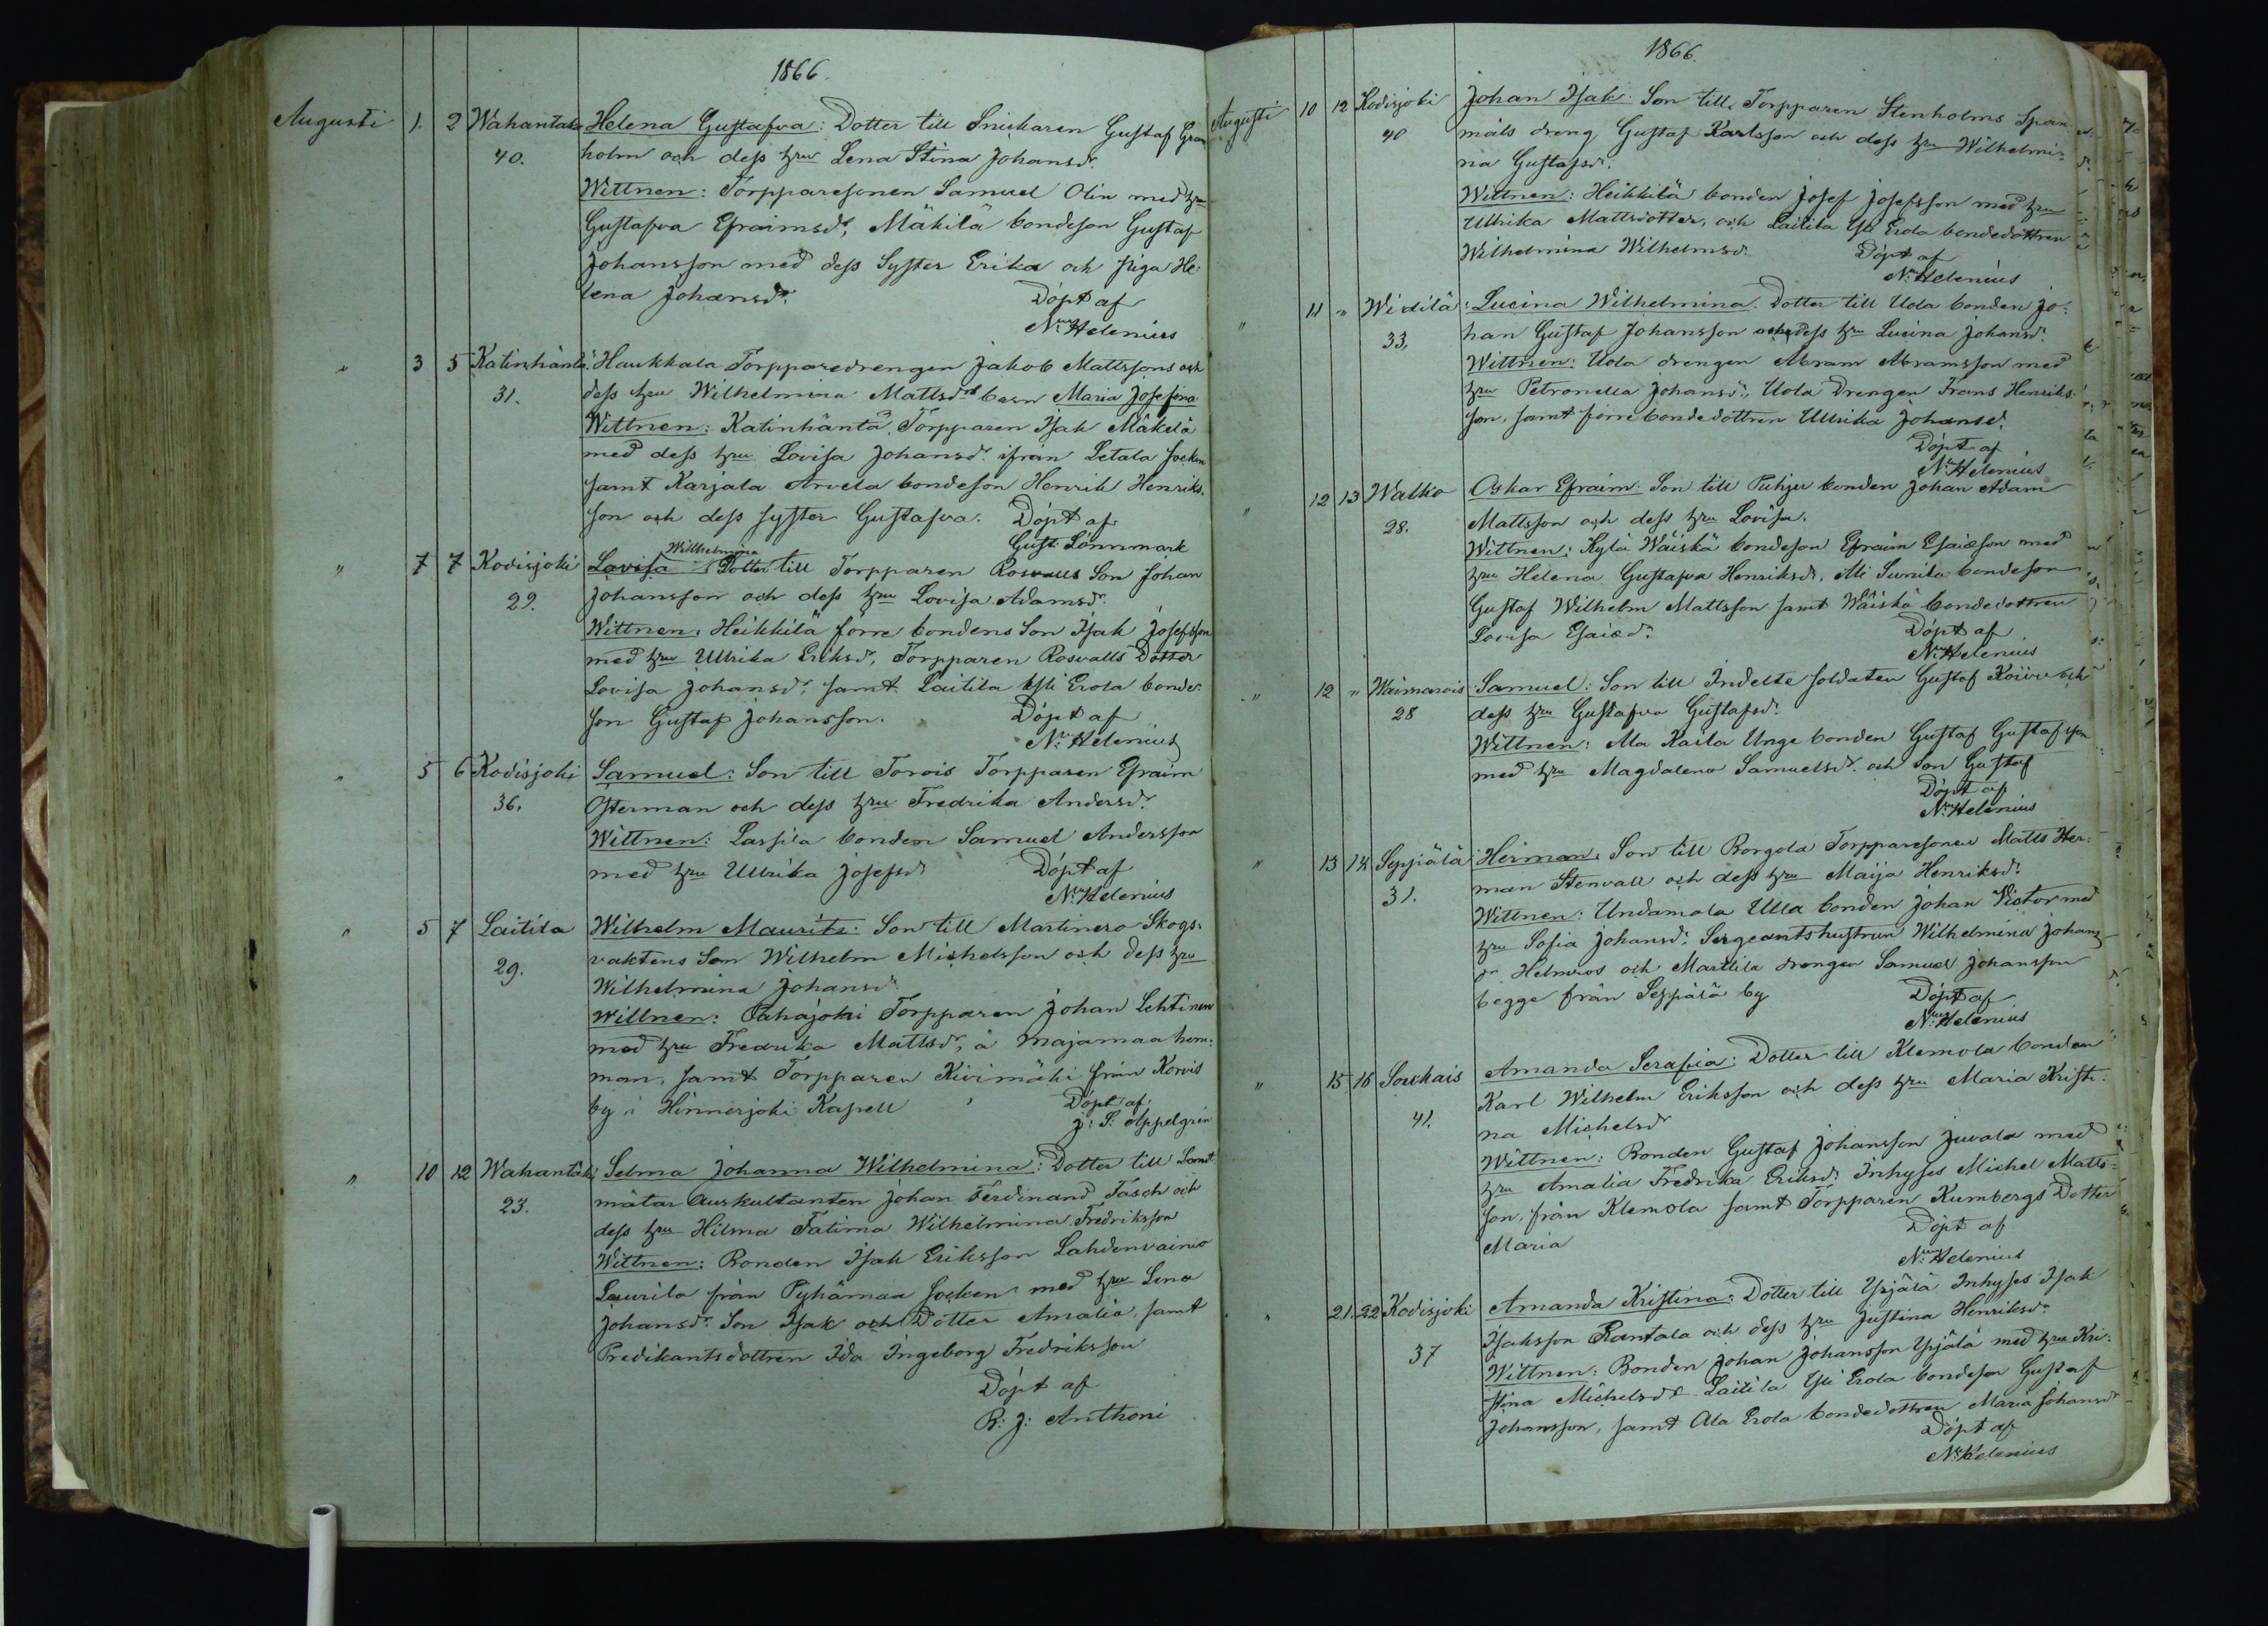 1866.
Augusti 1. 2 Wahantaka Helena Gustafva: Dotter till Snickaren Gustaf Gran
40. holm och dess hru Lena Stina Johansdr.
Wittnen: Torpparesonen Samuel Olin med hru
Gustafva Efraimsdr, Mäkilä bondeson Gustaf
Johansson med dess Syster Erika och piga He-
lena Johansdr. Döpt af
N. Helenius
" 3 5 Katinhäntä: Haukkala Torpparedrengen Jakob Mattssons och
31. dess hru Wilhelmina Mattsdrs barn Maria Josefina
Wittnen: Katinhäntä Torpparen Isak Mäkelä
med dess hru Lovisa Johansdr. ifrån Letala socken
samt Karjala Arvela bondeson Henrik Henriks-
son och dess syster Gustafva. Döpt af
Gust. Lönnmark
" 7 7 Kodisjoki Lovisa Wilhelmina Dotter till Torpparen Rosvalls Son Johan
29. Johansson och dess hru Lovisa Adamsdr.
Wittnen: Heikkilä förre bondens Son Isak Josefsson
med hru Ullrika Eriksdr, Torpparen Rosvalls Dotter
Lovisa Johansdr, samt Laitila Yli Erola bonde-
son Gustaf Johansson. Döpt af
N. Helenius
" 5 6 Kodisjoki Samuel: Son till Torois Torpparen Efraim
36. Österman och dess hru Fredrika Andersdr.
Wittnen: Lassila bonden Samuel Andersson
med hru Ullrika Josefsdr Döpt af
N. Helenius
" 5 7 Laitila Wilhelm Maurits: Son till Martinero Skogs-
29. vaktens Son Wilhelm Michelsson och dess hru
Wilhelmina Johansdr.
Wittnen: Pahajoki Torpparen Johan Lehtinen
med hru Fredrika Mattsdr, å Majamaa hem-
man, samt Torpparen Kivimäki från Korvis
by i Hinnerjoki Kapell Döpt af
J: S: Appelgrén
" 10 12 Wahantaka Selma Johanna Wilhelmina: Dotter till Landt-
23. mätar Auskultanten Johan Ferdinand Fasch och
dess hru Hilma Fatima Wilhelmina Fredriksson
Wittnen: Bonden Isak Eriksson Lahdenvainio
Laurila från Pyhämaa socken med hru Lena
Johansdr. Son Isak och Dotter Amalia, samt
Predikantsdottren Ida Ingeborg Fredriksson
Döpt af
B: J: Anthoni
1866.
Augusti 10 12 Kodisjoki Johan Isak: Son till Torpparen Stenholms Span-
40 måls dreng Gustaf Karlsson och dess hru Wilhelmi-
na Gustafsdr.
Wittnen: Heikkilä bonden Josef Josefsson med hru
Ullrika Mattsdotter, och Laitila Yli Erola bondedottren
Wilhelmina Wilhelmsdr. Döpt af
N. Helenius
" 11 " Widilä: Lucina Wilhelmina. Dotter till Uola bonden Jo-
33. han Gustaf Johansson och dess hru Lucina Johansdr.
Wittnen: Uola drengen Abram Abramsson med
hru Petronella Johansdr., Uola Drengen Frans Henriks-
son, samt förre bondedottren Ullrika Johansd.
Döpt af
N. Helenius
" 12 13 Walko Oskar Efraim: Son till Puhju bonden Johan Adam
28. Mattsson och dess hru Lovisa.
Wittnen: Kylä Wäiskä bondeson Efraim Esaiæson med
hru Helena Gustafva Henriksdr, Ali Sunila bondeson
Gustaf Wilhelm Mattsson samt Wäiskä bondedottren
Lovisa Esaiædr. Döpt af
N. Helenius
" 12 " Waimarois Samuel: Son till Indelte soldaten Gustaf Koivu och
28 dess hru Gustafva Gustafsdr.
Wittnen: Ala Kaila Unge bonden Gustaf Gustafsson
med hru Magdalena Samuelsdr. och Son Gustaf
Döpt af
N. Helenius
" 13 14 Seppälä Herman: Son till Borgola Torpparesonen Matts Her-
31. man Stenvall och dess hru Maija Henriksdr.
Wittnen: Undamola Ulla bonden Johan Victor med
hru Sofia Johansdr; Sergeantshustrun Wilhelmina Johans-
dr Helmros och Marttila drengen Samuel Johansson
begge från Seppälä by Döpt af
N. Helenius
" 15 16 Soukais Amanda Serafia: Dotter till Klemola bonden
41. Karl Wilhelm Eriksson och dess hru Maria Kristi-
na Michelsdr
Wittnen: Bonden Gustaf Johansson Juvala med
hru Amalia Fredrika Eriksdr. Inhyses Michel Matts-
son, från Klemola samt Torpparen Kumbergs Dotter
Maria Döpt af
N. Helenius
" 21. 22 Kodisjoki Amanda Kristina: Dotter till Ypjälä Inhyses Isak
37 Isaksson Rantala och dess hru Justina Henriksdr.
Wittnen: Bonden Johan Johansson Ypjälä med hru Kri-
stina Michelsdr Laitila Yli Erola bondeson Gustaf
Johansson, samt Ala Erola bondedottren Maria Johansdr
Döpt af
N. Helenius